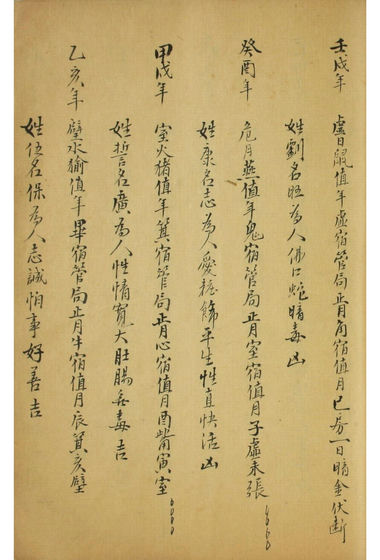 壬戌年 虛日鼠值年虛宿管局正月角宿值月巳房一日暗金伏断
姓劉名旺為人佛口蛇暗毒凶
癸酉年 危月燕值年鬼宿管局正月室宿值月子虛未張
姓康名志為人愛粧餙平生性直快活凶
甲戌年 室火猪值年箕宿管局正月心宿值月酉觜寅室
姓誓名廣為人性情寬大肚腸無毒吉
乙亥年 壁水貐值年畢宿管局正月牛宿值月辰箕亥壁
姓伍名保為人志誠怕事好善吉